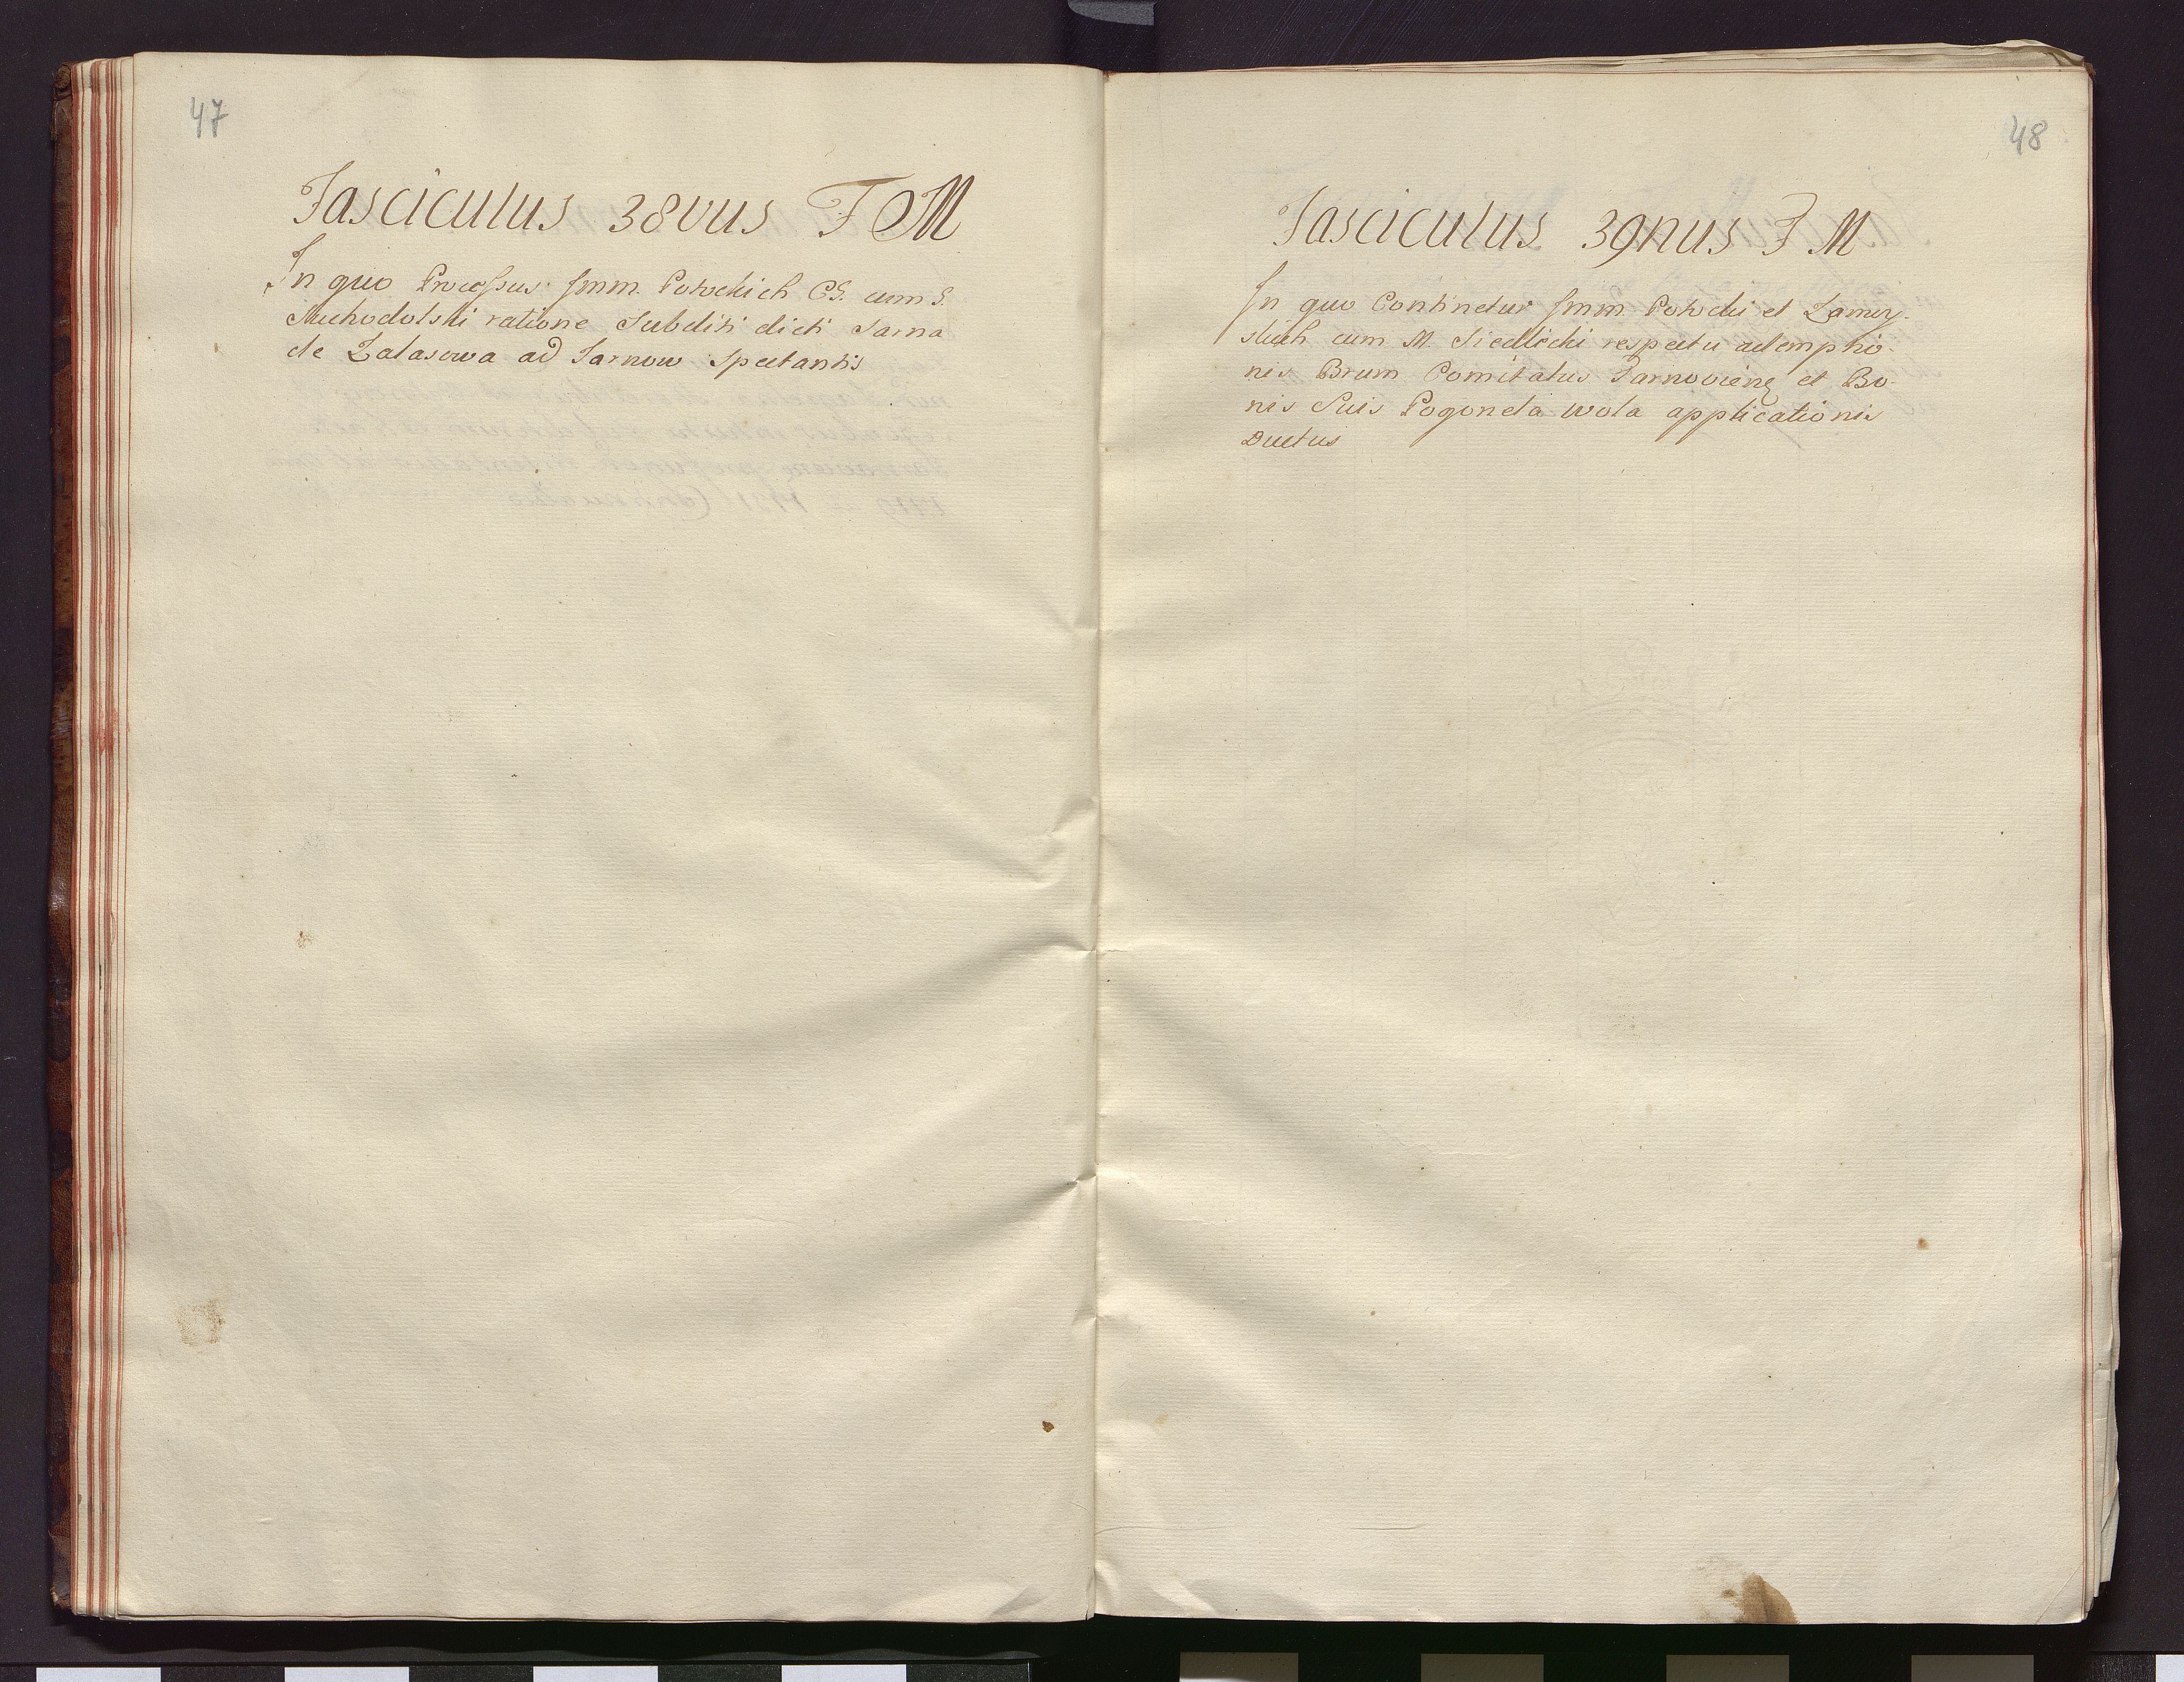 47
Fasciculus 38vus T M
In quo Processus Jmm. Potockich CS. cum G.
Suchodolski ratione Subditi dicti Sarna
de Zalasowa ad Tarnow Spectantis
48
Fasciculus 39nus T M
In quo Continetur Jmm Potocki et Zamoy-
skich cum M. Siedlecki respectu ademptio-
nis Brum Comitatus Tarnovieng et Bo-
nis Suis Pogonela wola applicationis
Ductus